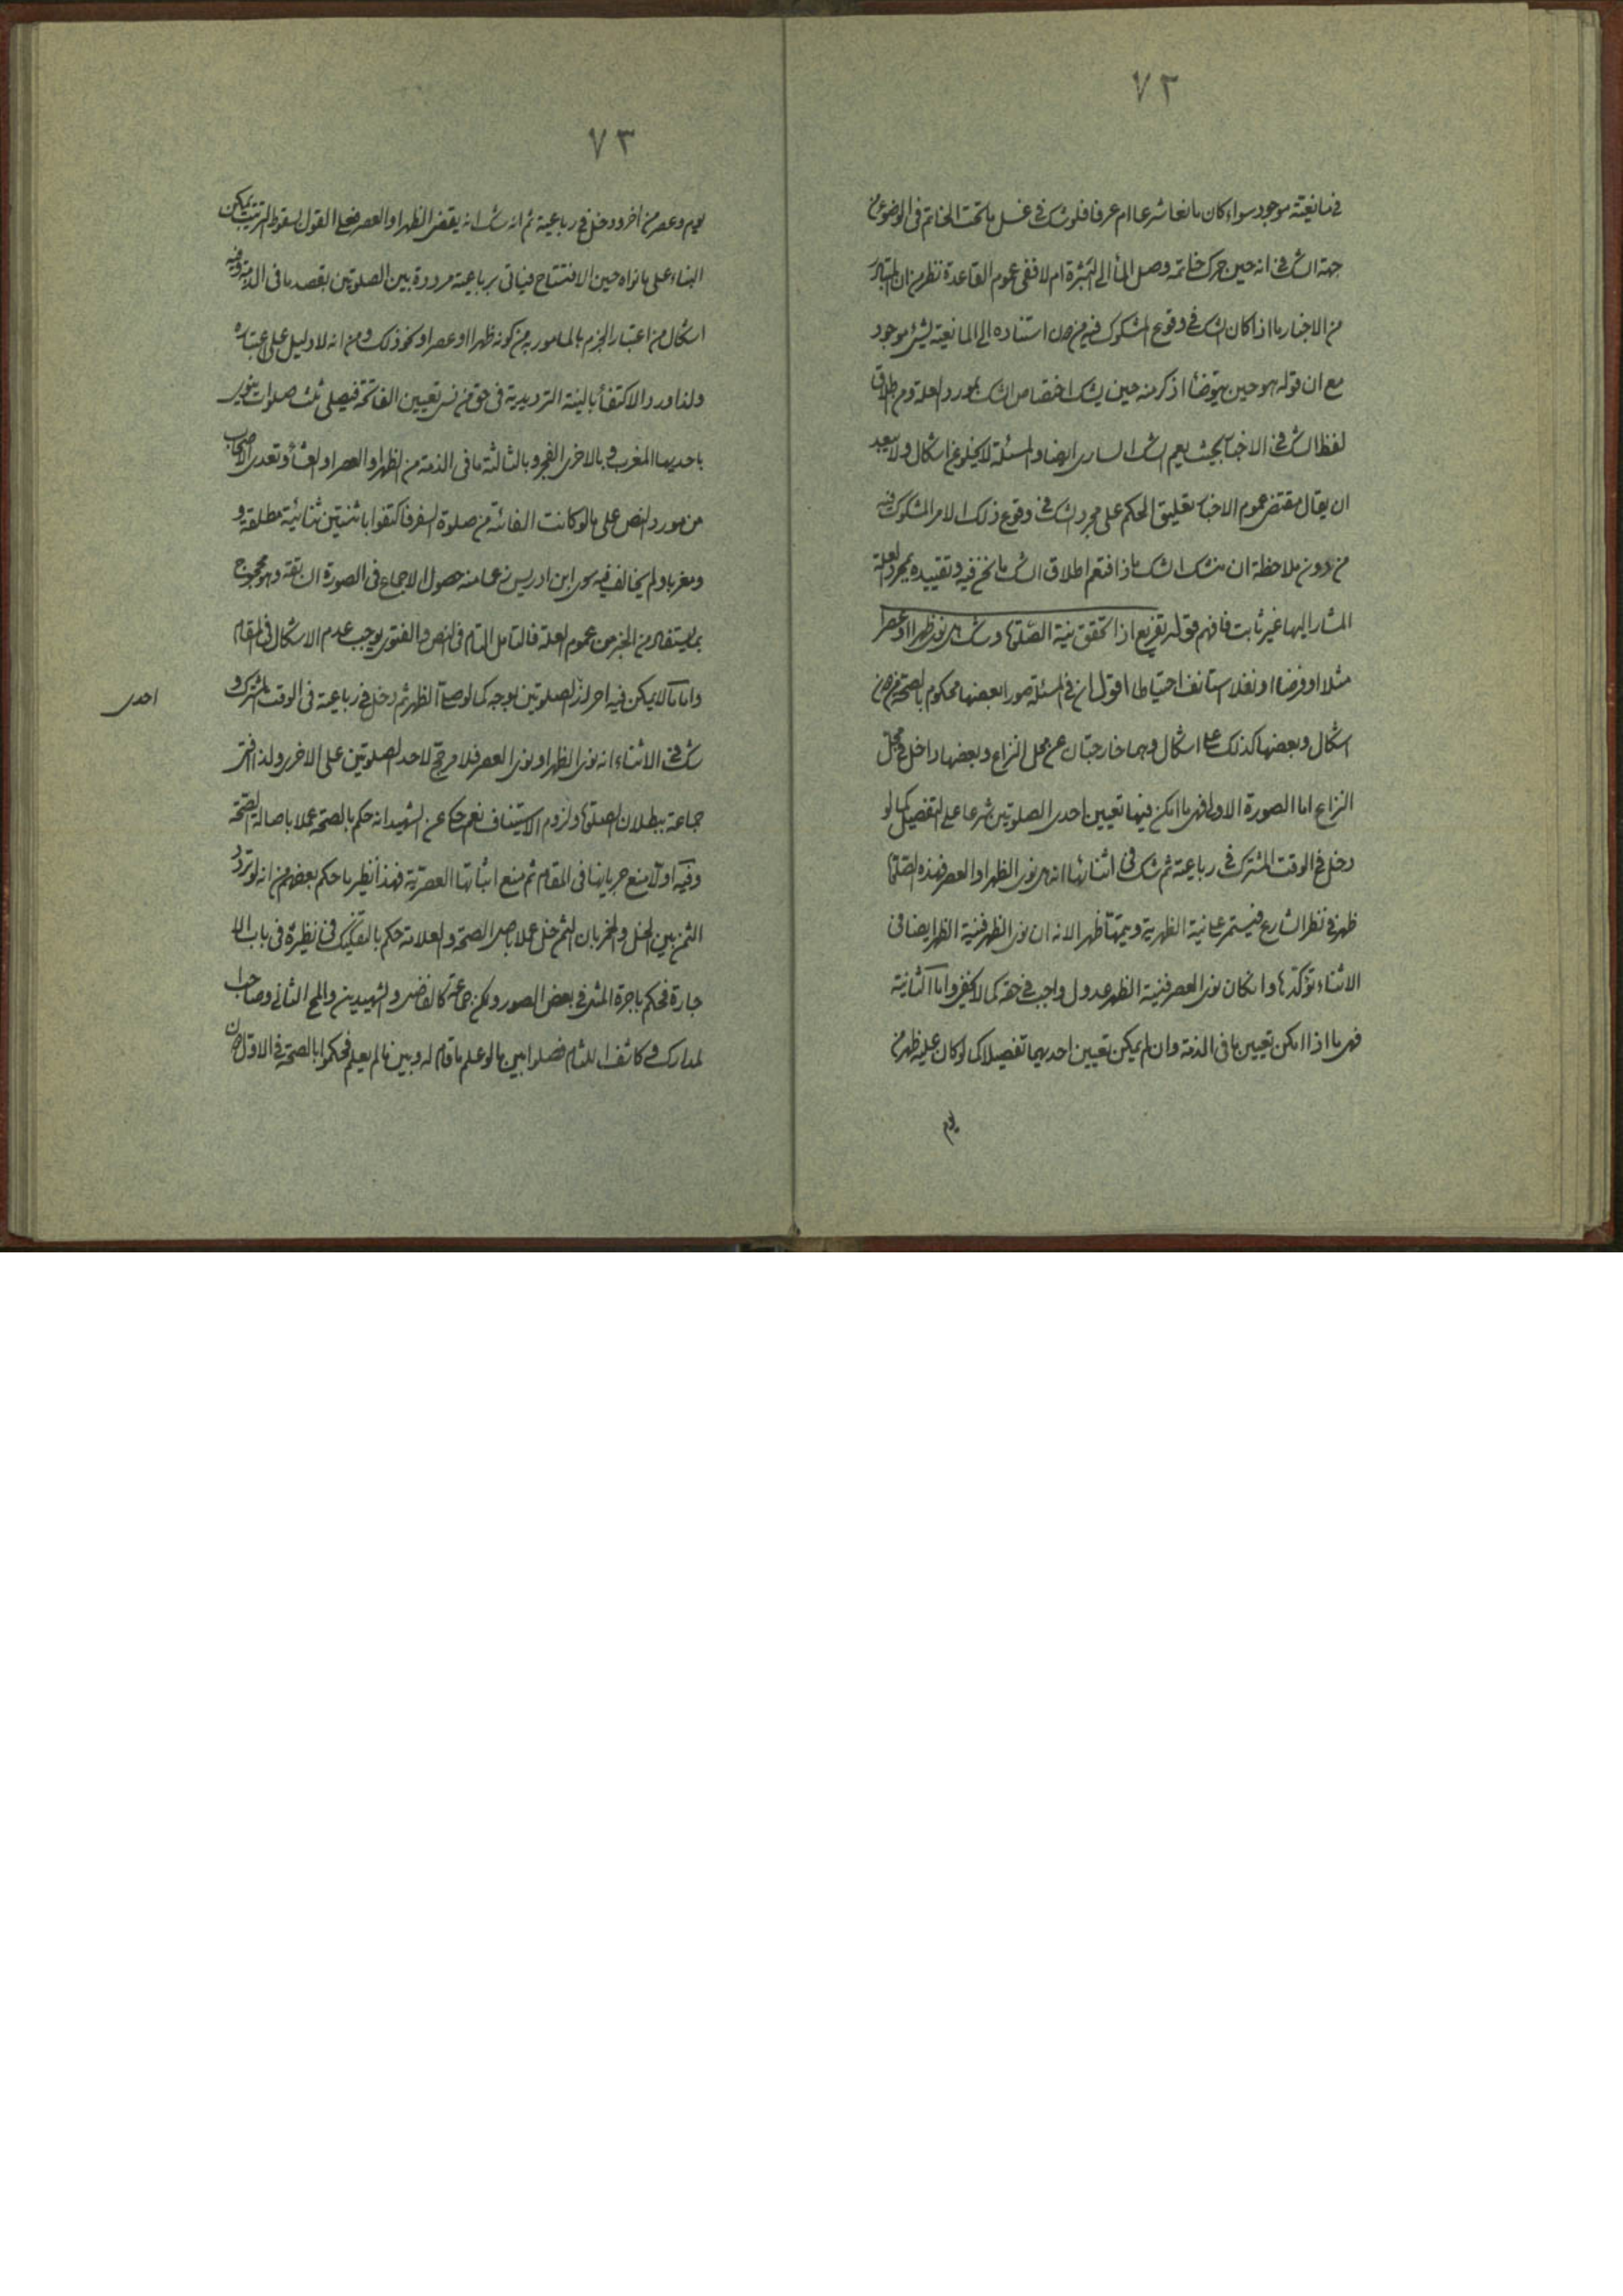 ٧٢
في مانعية موجود سواء كان مانعا شرعا ام عرفا فلو شك في غسل ما تحت الخاتم في الوضوء من
جهة الشك في انه حين حرك خاتمه وصل الماء الى البشرة ام لا ففي عموم القاعدة نظر من ان المتبادر
من الاخبار ما اذا كان الشك في وقوع المشكوك فيه من دون استناده الى المانعية لشئ موجود
مع ان قوله هو حين يتوضأ اذكر منه حين يشك اختصاص الشك بمورد العلة ومن اطلاق
لفظ الشك في الاخبار بحيث يعم الشك الساري ايضا والمسئلة لا يخلو عن اشكال ولا يبعد
ان يقال مقتضى عموم الاخبار تعليق الحكم على مجرد الشك في وقوع ذلك الامر المشكوك فيه
من دون ملاحظة ان منشأ الشك ماذا فتعم اطلاق الشك ما نحن فيه وتقييده بمجرد العلة
المشار اليها غير ثابت فافهم قوله تفريع اذا تحقق نية الصلوة وشك هل نوى ظهرا او عصرا
مثلا او فرضا او نفلا استانف احتياطا اقول ان في المسئلة صورا بعضها محكوم بالصحة من دون
اشكال وبعضها كذلك على اشكال وهما خارجتان عن محل النزاع وبعضها داخل في محل
النزاع اما الصورة الاولى فهي ما امكن فيها تعيين احدى الصلوتين شرعا على التفصيل كما لو
دخل في الوقت المشترك في رباعية ثم شك في اثنائها انه هل نوى الظهر او العصر فهذه الصلوة
ظهر في نظر الشارع فيستمر على نية الظهرية ويتمها ظهرا لانه ان نوى الظهر فنية الظهر ايضا في
الاثناء تؤكدها وان كان نوى العصر فنية الظهر عدول واجب في حقه كما لا يخفى واما الثانية
فهي ما اذا امكن تعيين ما في الذمة وان لم يمكن تعيين احديهما تفصيلا كما لو كان عليه ظهر من
يوم
٧٣
يوم وعصر من آخر ودخل في رباعية ثم انه شك انه يقضى الظهر او العصر فعلى القول بسقوط الترتيب يمكن
البناء على ما نواه حين الافتتاح فياتى برباعية مرددة بين الصلوتين بقصد ما في الذمة وفيه
اشكال من اعتبار الجزم بالمامور به من كونه ظهرا او عصرا ونحو ذلك ومن انه لا دليل على اعتباره
ولذا ورد الاكتفاء بالنية الترديدية في حق من نسى تعيين الفائتة فيصلى ثلث صلوات ينوى
باحديها المغرب وبالاخرى الفجر وبالثالثة ما في الذمة من الظهر او العصر او العشاء وتعدى الاصحاب
من مورد النص على ما لو كانت الفائتة من صلوة السفر فاكتفوا باثنتين ثنائية مطلقة و
ومغربا ولم يخالف فيه سوى ابن ادريس زعما منه حصول الاجماع في الصورة السابقة وهو محجوج
بما يستفاد من الخبر من عموم العلة فالتامل التام في النص والفتوى يوجب عدم الاشكال في المقام
واما ما لا يمكن فيه احراز الصلوتين بوجه كما لو صلى الظهر ثم دخل في رباعية في الوقت المشترك و
احدى
شك في الاثناء انه نوى الظهر او نوى العصر فلا مرجح لاحد الصلوتين على الاخرى ولذا افتى
جماعة ببطلان الصلوة ولزوم الاستيناف نعم حكى عن الشهيد انه حكم بالصحة عملا باصالة الصحة
وفيه اولا منع جريانها في المقام ثم منع اثباتها العصرية فهذا نظير ما حكم بعضهم من انه لو تردد
الثمن بين الخل والخمر بان الثمن خل عملا باصل الصحة والعلامة حكم بالتفكيك في نظيره في باب الا
جارة فحكم باجرة المثل في بعض الصور ولكن جماعة كالفاضل والشهيدين والمحقق الثاني وصاحبا
لمدارك وكاشف اللثام فصلوا بين ما لو علم ما قام له وبين ما لم يعلم فحكموا بالصحة في الاول دون